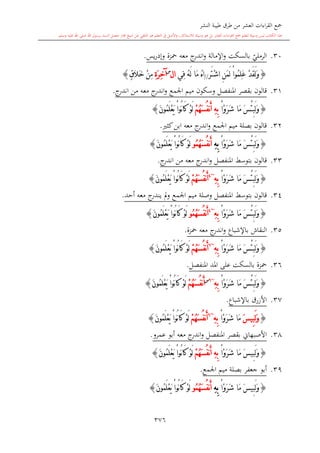 جمع القراءات العشر من طرق طيبة النشر
٣٠. الرمليّ بالسكت والإمالة واندرج معه حمزة وإدريس.
﴿ وَلَقَدْ عَلِمُوا لَمَنِ اشْتَرَاهُ مَا لَهُ فِي الْآخِرَةِ مِنْ خَلَاقٍ ﴾
٣١. قالون بقصر المنفصل وسكون ميم الجمع واندرج معه من اندرج.
﴿ وَلَبِئْسَ مَا شَرَوْا بِهِ أَنفُسَهُمْ لَوْ كَانُوا يَعْلَمُونَ ﴾
٣٢. قالون بصلة ميم الجمع واندرج معه ابن كثير.
﴿ وَلَبِئْسَ مَا شَرَوْا بِهِ أَنفُسَهُمُو لَوْ كَانُوا يَعْلَمُونَ ﴾
٣٣. قالون بتوسط المنفصل واندرج معه من اندرج.
﴿ وَلَبِئْسَ مَا شَرَوْا بِهِ أَنفُسَهُمْ لَوْ كَانُوا يَعْلَمُونَ ﴾
٣٤. قالون بتوسط المنفصل وصلة ميم الجمع ولم يندرج معه أحد.
﴿ وَلَبِئْسَ مَا شَرَوْا بِهِ أَنفُسَهُمُو لَوْ كَانُوا يَعْلَمُونَ ﴾
٣٥. النقاش بالإشباع واندرج معه حمزة.
﴿ وَلَبِئْسَ مَا شَرَوْا بِهِ أَنفُسَهُمْ لَوْ كَانُوا يَعْلَمُونَ ﴾
٣٦. حمزة بالسكت على المد المنفصل.
﴿ وَلَبِئْسَ مَا شَرَوْا بِهِ أَنفُسَهُمْ لَوْ كَانُوا يَعْلَمُونَ ﴾
٣٧. الأزرق بالإشباع.
﴿ وَلَبِيسَ مَا شَرَوْا بِهِ أَنفُسَهُمْ لَوْ كَانُوا يَعْلَمُونَ ﴾
٣٨. الأصبهاني بقصر المنفصل واندرج معه أبو عمرو.
﴿ وَلَبِيسَ مَا شَرَوْا بِهِ أَنفُسَهُمْ لَوْ كَانُوا يَعْلَمُونَ ﴾
٣٩. أبو جعفر بصلة ميم الجمع.
﴿ وَلَبِيسَ مَا شَرَوْا بِهِ أَنفُسَهُمُو لَوْ كَانُوا يَعْلَمُونَ ﴾
٣٧٦